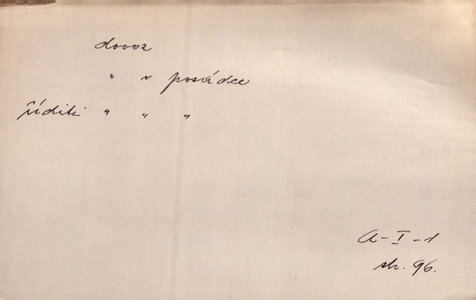 dovoz
" v posádce
říditi " " "
A-I-1
str. 96.